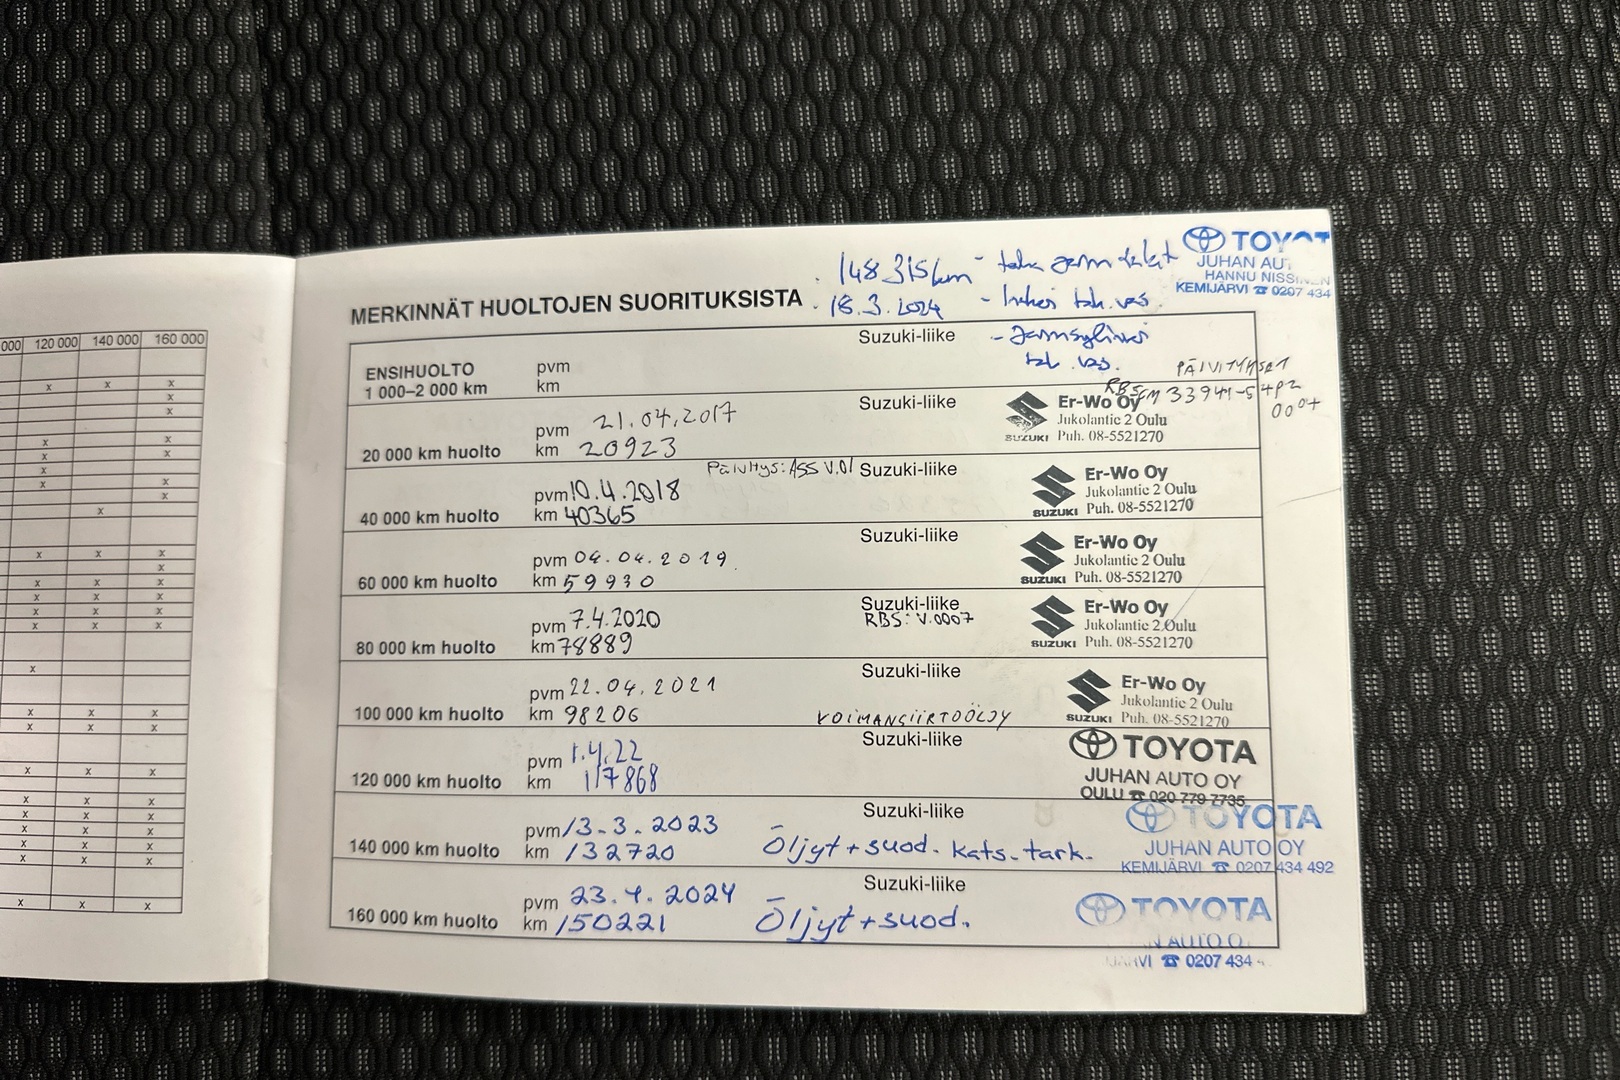 000 120 000 140 000 160 000
148 315 km - taka jarrupalat
18.3.2024 - tak. vas.
- Jarrusylinteri
tak. vas.
TOYOT
JUHAN AUT
HANNU NISSINEN
KEMIJÄRVI ☎ 0207 434
MERKINNÄT HUOLTOJEN SUORITUKSISTA
ENSIHUOLTO
1 000–2 000 km
pvm
km
Suzuki-liike
PÄIVITYKSET
20 000 km huolto
pvm 21.04.2017
km 20923
Suzuki-liike
SUZUKI
Er-Wo Oy
Jukolantie 2 Oulu
Puh. 08-5521270
40 000 km huolto
pvm 10.4.2018
km 40365
PÄIVITYS: ASS V.01
Suzuki-liike
SUZUKI
Er-Wo Oy
Jukolantie 2 Oulu
Puh. 08-5521270
60 000 km huolto
pvm 04.04.2019
km 59930
Suzuki-liike
SUZUKI
Er-Wo Oy
Jukolantie 2 Oulu
Puh. 08-5521270
80 000 km huolto
pvm 7.4.2020
km 78889
Suzuki-liike
RBS: V.0007
SUZUKI
Er-Wo Oy
Jukolantie 2 Oulu
Puh. 08-5521270
100 000 km huolto
pvm 22.04.2021
km 98206
Suzuki-liike
VOIMANSIIRTOÖLJY
SUZUKI
Er-Wo Oy
Jukolantie 2 Oulu
Puh. 08-5521270
120 000 km huolto
pvm 1.4.22
km 117868
Suzuki-liike
TOYOTA
JUHAN AUTO OY
OULU ☎ 020 779 7735
140 000 km huolto
pvm 13.3.2023
km 132720
Suzuki-liike
Öljyt + suod. kats. tark.
TOYOTA
JUHAN AUTO OY
KEMIJÄRVI ☎ 0207 434 492
160 000 km huolto
pvm 23.4.2024
km 150221
Suzuki-liike
Öljyt + suod.
TOYOTA
N AUTO O
JÄRVI ☎ 0207 434 4